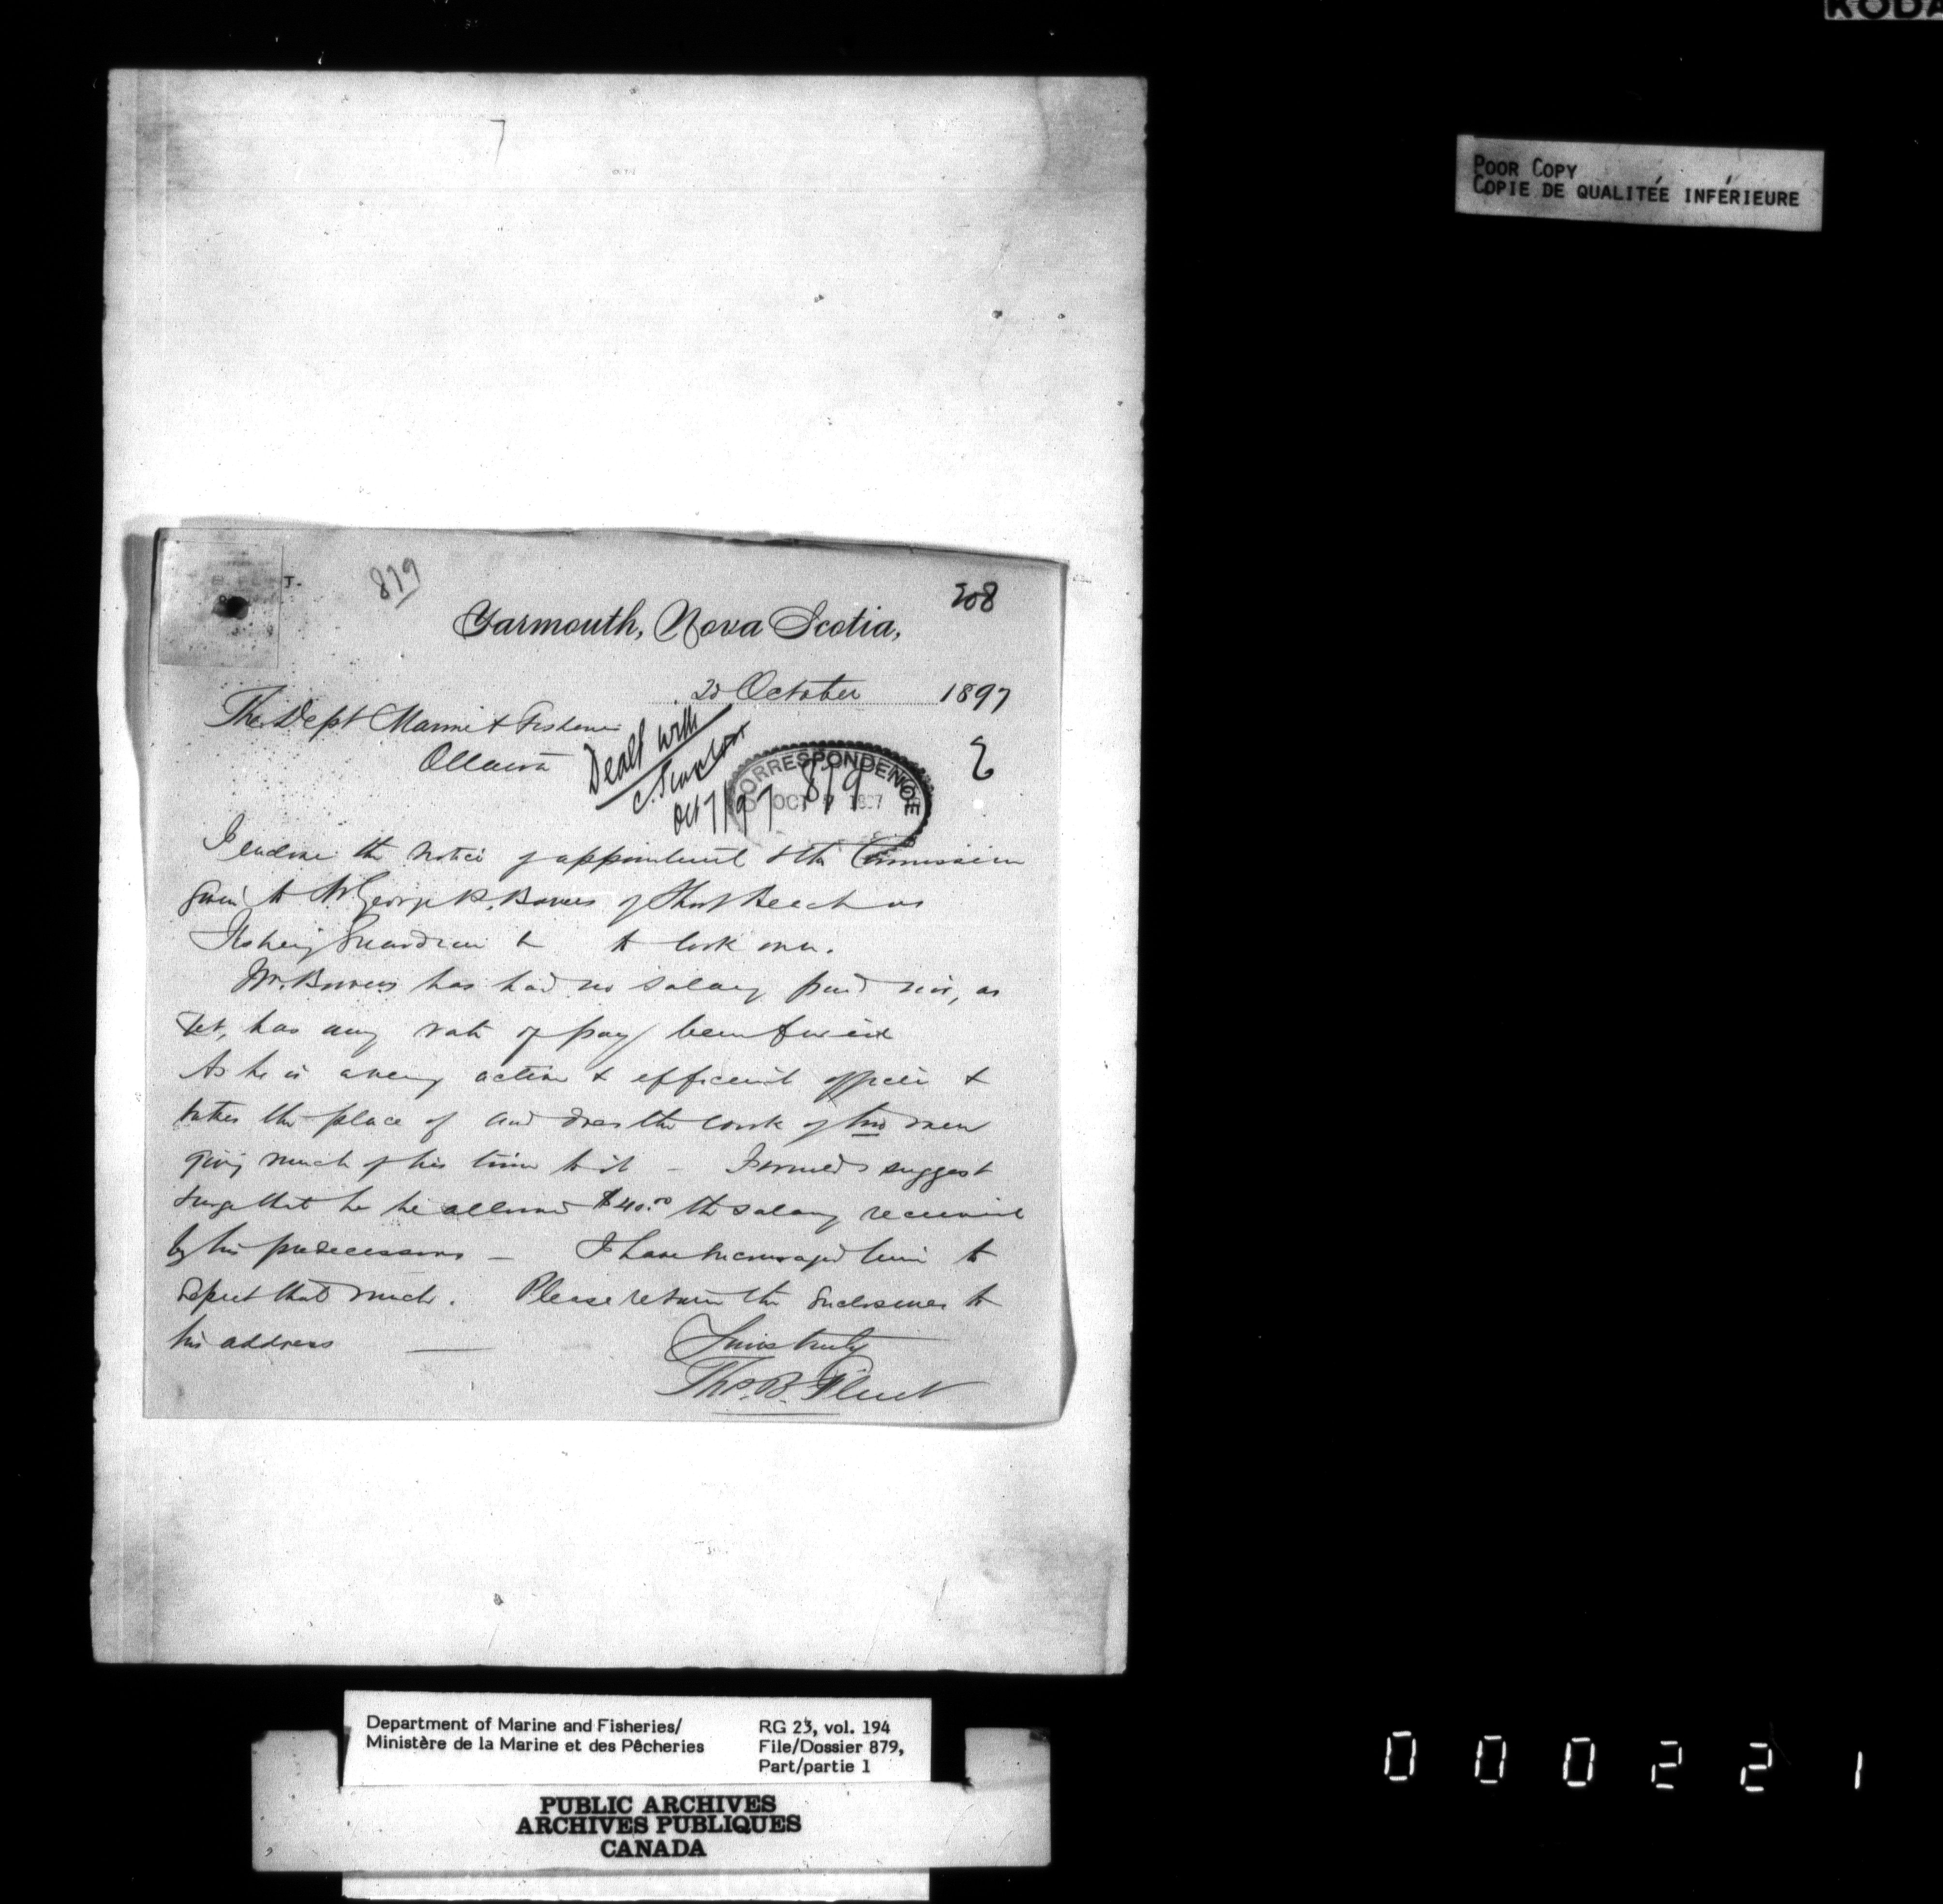 KODA
POOR COPY
COPIE DE QUALITÉE INFÉRIEURE
879
208
Yarmouth, Nova Scotia,
October 1897
The Dept Marine & Fisheries
Ottawa
Dealt with
Oct 7/97
CORRESPONDENCE
OCT 7 1897
879
I enclose the notice of appointment & the Commission
given to Mr George R. Bowers of Short Beach as
Fishery Guardian to look over.
Mr. Bowers has had no salary paid nor, as
yet, has any rate of pay been fixed
As he is a very active & efficient officer &
takes the place of and does the work of two men
giving much of his time to it – I would suggest
& urge that he be allowed $40.00 the salary received
by his predecessors – I have encouraged him to
expect that much. Please return the enclosures to
his address
Yours truly
Tho. B. Flint
Department of Marine and Fisheries/
Ministère de la Marine et des Pêcheries
RG 23, vol. 194
File/Dossier 879,
Part/partie 1
PUBLIC ARCHIVES
ARCHIVES PUBLIQUES
CANADA
000221